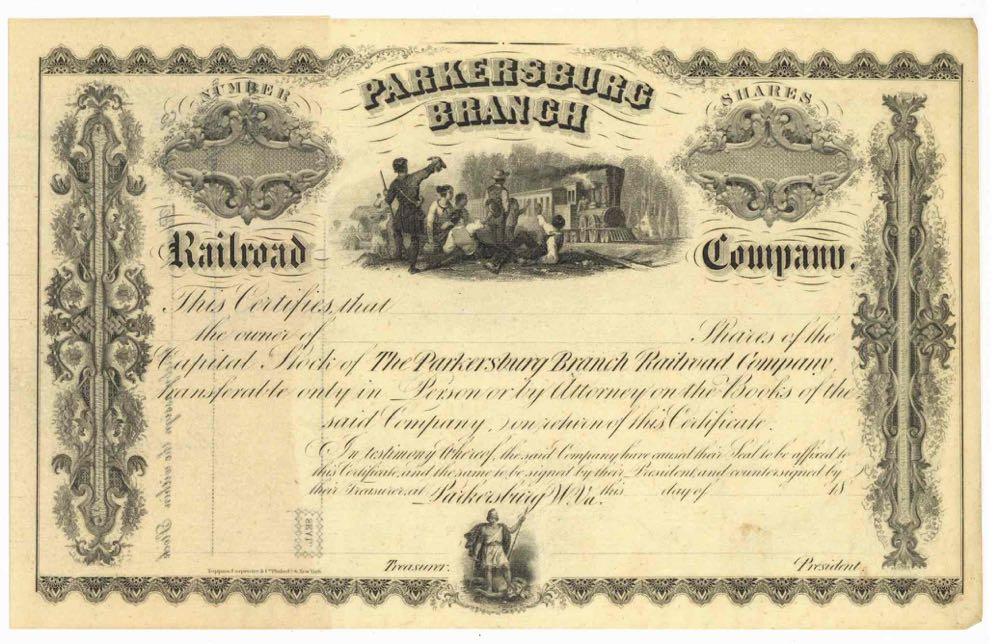 NUMBER
PARKERSBURG
BRANCH
SHARES
Railroad
Company.
This Certifies, that
the owner of Shares of the
Capital Stock of The Parkersburg Branch Railroad Company,
transferable only in Person or by Attorney on the Books of the
said Company, on return of this Certificate.
In testimony Whereof, the said Company have caused their Seal to be affixed to
this Certificate, and the same to be signed by their President, and countersigned by
their Treasurer, at Parkersburg W. Va. this day of 18
Treasurer.
President.
Toppan, Carpenter & Co. Philada. & New York